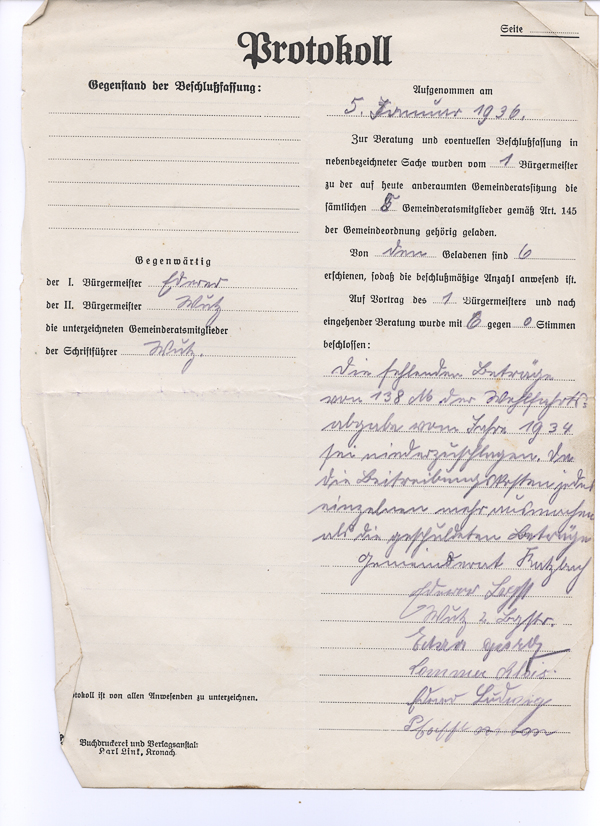 Seite
Protokoll
Gegenstand der Beschlußfassung:
Gegenwärtig
der I. Bürgermeister Ederer
der II. Bürgermeister Wutz
die unterzeichneten Gemeinderatsmitglieder
der Schriftführer Wutz.
otokoll ist von allen Anwesenden zu unterzeichnen.
Buchdruckerei und Verlagsanstalt
Karl Link, Kronach
Aufgenommen am
5. Januar 1936.
Zur Beratung und eventuellen Beschlußfassung in
nebenbezeichneter Sache wurden vom 1 Bürgermeister
zu der auf heute anberaumten Gemeinderatssitzung die
sämtlichen Gemeinderatsmitglieder gemäß Art. 145
der Gemeindeordnung gehörig geladen.
Von den Geladenen sind 6
erschienen, sodaß die beschlußmäßige Anzahl anwesend ist.
Auf Vortrag des 1 Bürgermeisters und nach
eingehender Beratung wurde mit 6 gegen 0 Stimmen
beschlossen:
Die fehlenden Beträge
von 138 M der Wohlfahrts=
abgabe vom Jahre 1934
sei niederzuschlagen. Da
die Beitreibungskosten jedes
einzelnen mehr ausmachen
als die geschuldeten Beträge
Gemeinderat Katzbach
Ederer
Wutz 2. Bgstr.
Georg
Sommer Alois
Ederer Ludwig